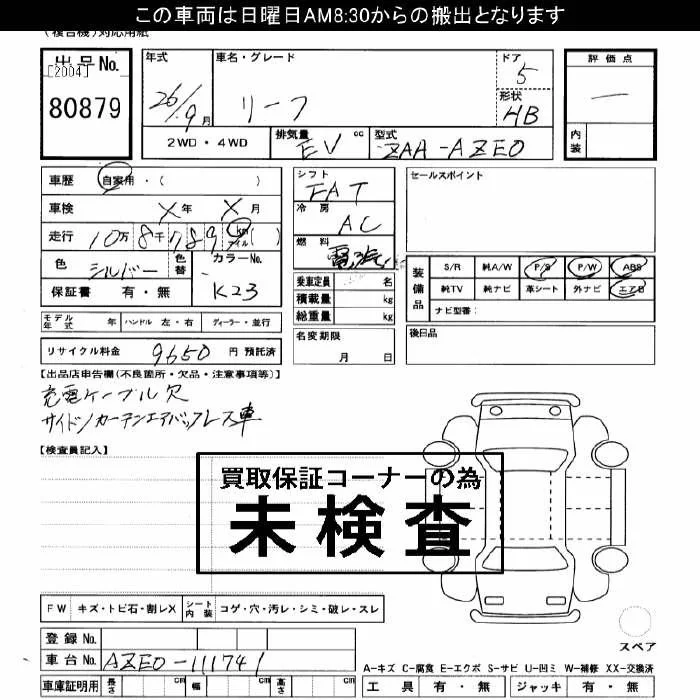 この車両は日曜日AM8:30からの搬出となります
(複合機)対応用紙
出品No.
[2004]
80879
年式
26/9月
車名・グレード
リーフ
ドア
5
形状
HB
評価点
―
内装
2WD・4WD
排気量
EV cc
型式
ZAA-AZE0
車歴 自家用・( )
車検 X年 X月
走行 10万 8千 7 8 9 km マイル( )
色 シルバー
色替
カラーNo.
K23
保証書 有・無
シフト
FAT
冷房
AC
燃料
電気
乗車定員 名
積載量 kg
総重量 kg
名変期限
月 日
セールスポイント
装備品
S/R 純A/W P/S P/W ABS
純TV 純ナビ 革シート 外ナビ エアB
ナビ型番:
後日品
モデル年式 年 ハンドル 左・右 ディーラー・並行
リサイクル料金 9650 円 預託済
【出品店申告欄(不良箇所・欠品・注意事項等)】
充電ケーブル欠
サイド/カーテンエアバッグレス車
【検査員記入】
買取保証コーナーの為
未検査
FW キズ・トビ石・割レX シート内装 コゲ・穴・汚レ・シミ・破レ・スレ
登録No.
車台No. AZE0-111741
車庫証明用 長さ cm 幅 cm 高さ cm
スペア
A-キズ C-腐食 E-エクボ S-サビ U-凹ミ W-補修 XX-交換済
工具 有・無 ジャッキ 有・無